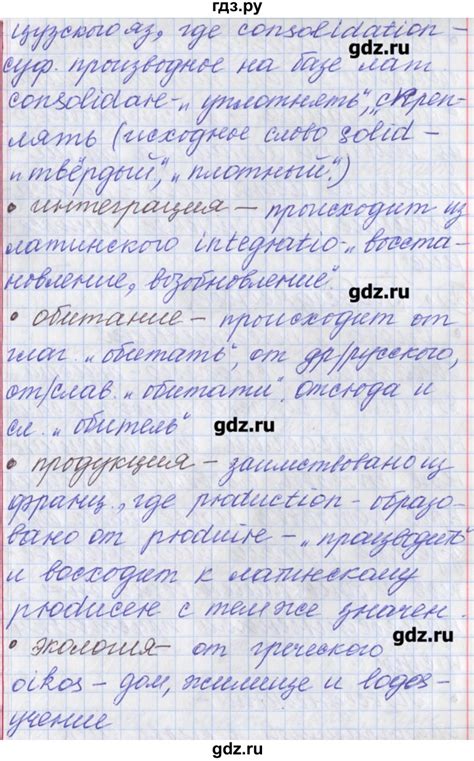 гдз.ру
цузского яз, где consolidation -
суф. производное на базе лат.
consolidare - „уплотнять“, „скреп-
лять (исходное слово solid -
„твёрдый“, „плотный“.)
gdz.ru
• интеграция – происходит из
латинского integratio - „восста-
новление, возобновление“.
gdz.ru
• обитание – происходит от
глаг. „обитать“, от др/русского,
gdz.ru
от/слав. „обитати“. отсюда и
сл. „обитель“
gdz.ru
• продукция – заимствовано из
франц., где production - образо-
gdz.ru
вано от produire – „празводить“
и восходит к латинскому
producen с тем же значен.
gdz.ru
• экология – от греческого
oikos – дом, жилище и logos -
учение
gdz.ru